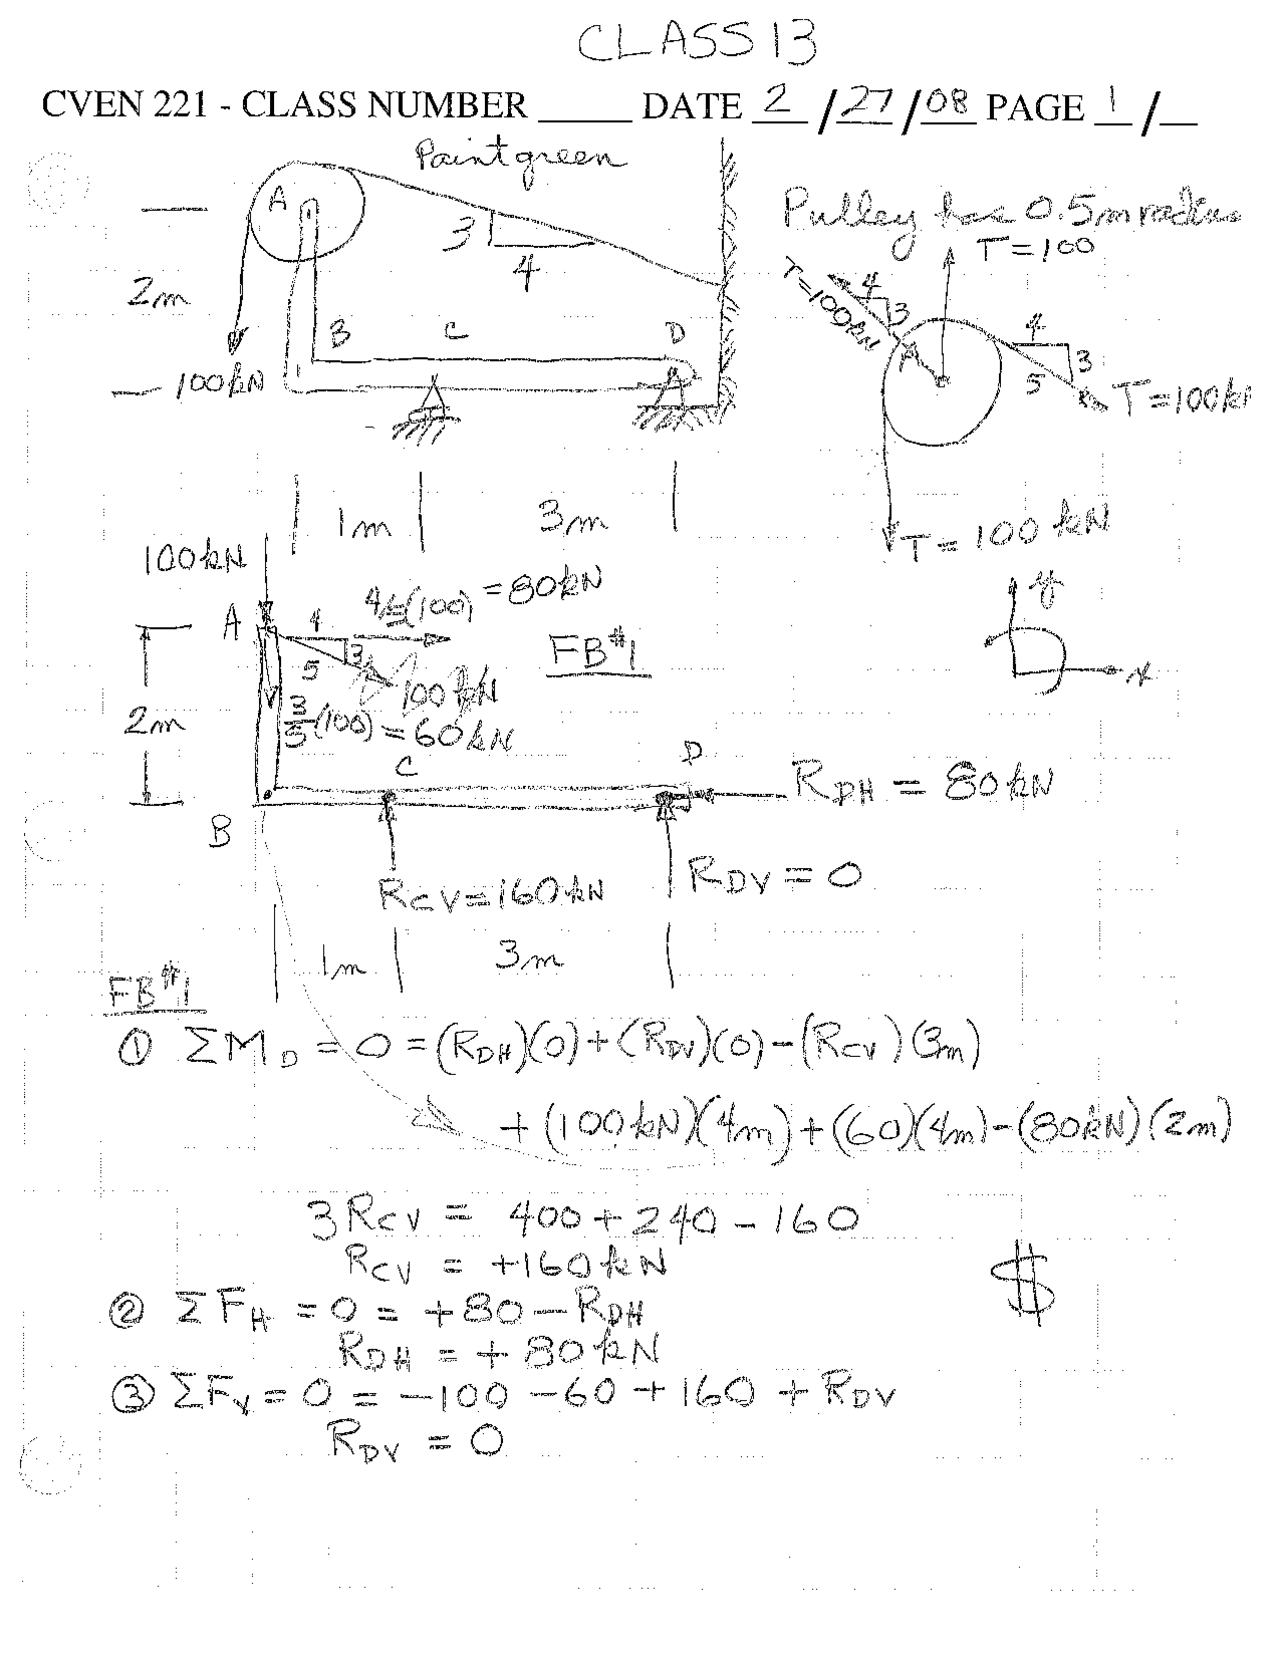 CLASS 13
CVEN 221 - CLASS NUMBER _____ DATE 2 / 27 / 08 PAGE 1 / __
Paint green
A
3
4
2m
B C D
100kN
1m 3m
Pulley has 0.5m radius
T=100
T=100kN
4
3
A
4
3
5
T=100kN
T=100kN
y
x
100kN
A
4
3
5
4/5(100) = 80kN
FB#1
100kN
2m
3/5(100) = 60kN
C D
B
RDH = 80kN
RCV = 160kN
RDV = 0
1m 3m
FB#1
① ΣMD = 0 = (RDH)(0) + (RDV)(0) - (RCV)(3m)
+ (100kN)(4m) + (60)(4m) - (80kN)(2m)
3RCV = 400 + 240 - 160
RCV = +160kN
$
② ΣFH = 0 = +80 - RDH
RDH = +80kN
③ ΣFV = 0 = -100 - 60 + 160 + RDV
RDV = 0